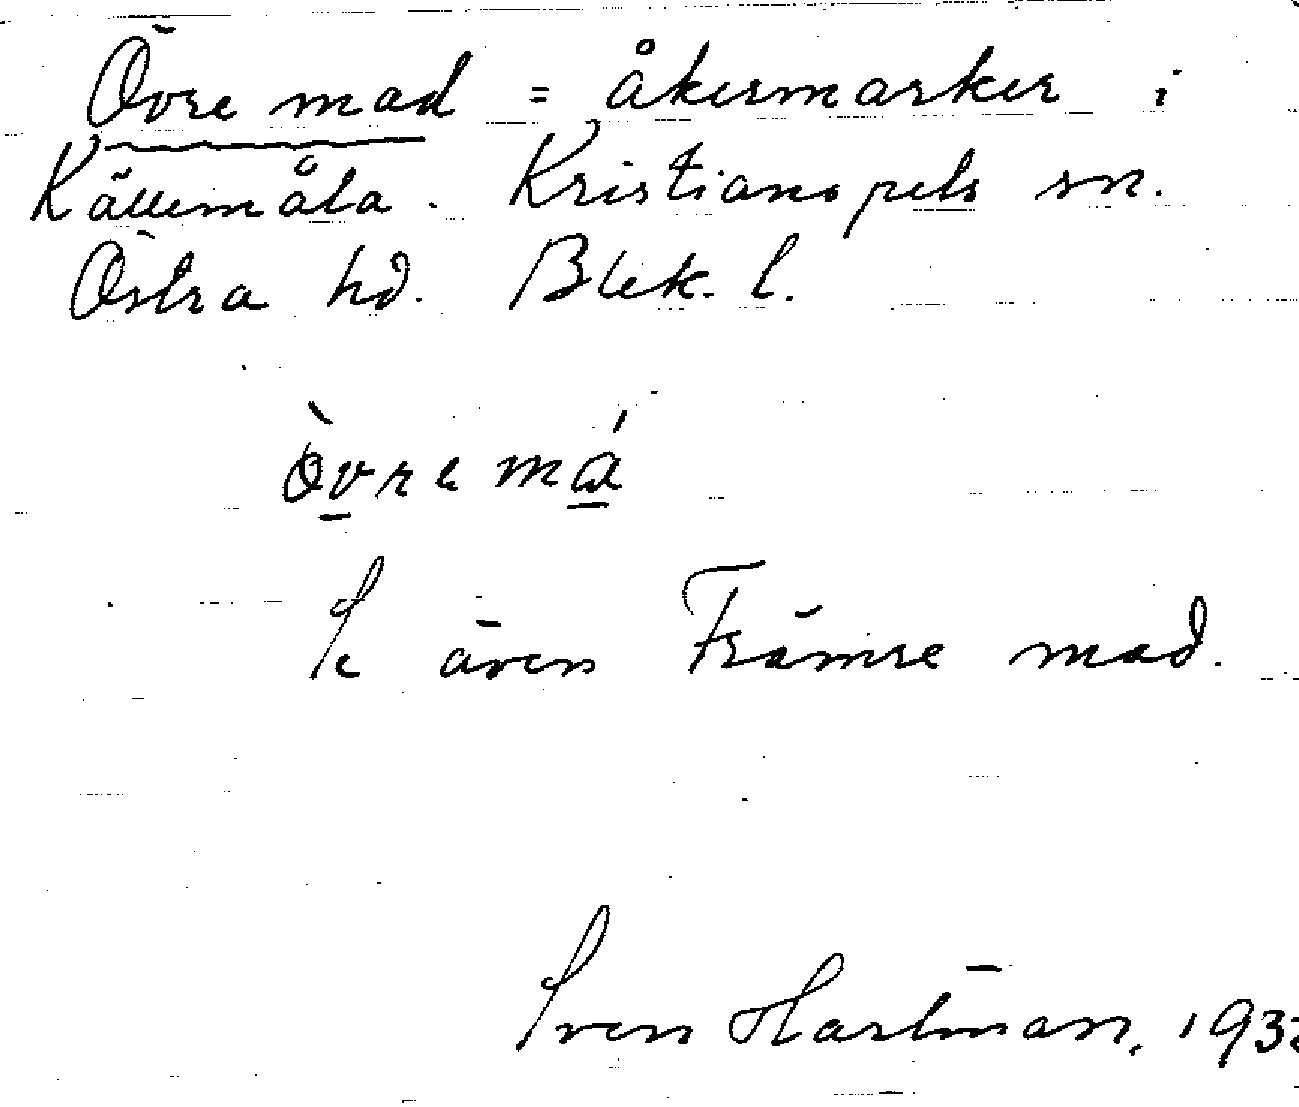 Övre mad = åkermarker i
Källemåla. Kristianopels sn.
Östra hd. Blek. l.
òvre má
Se även Främre mad.
Sven Hartman, 193